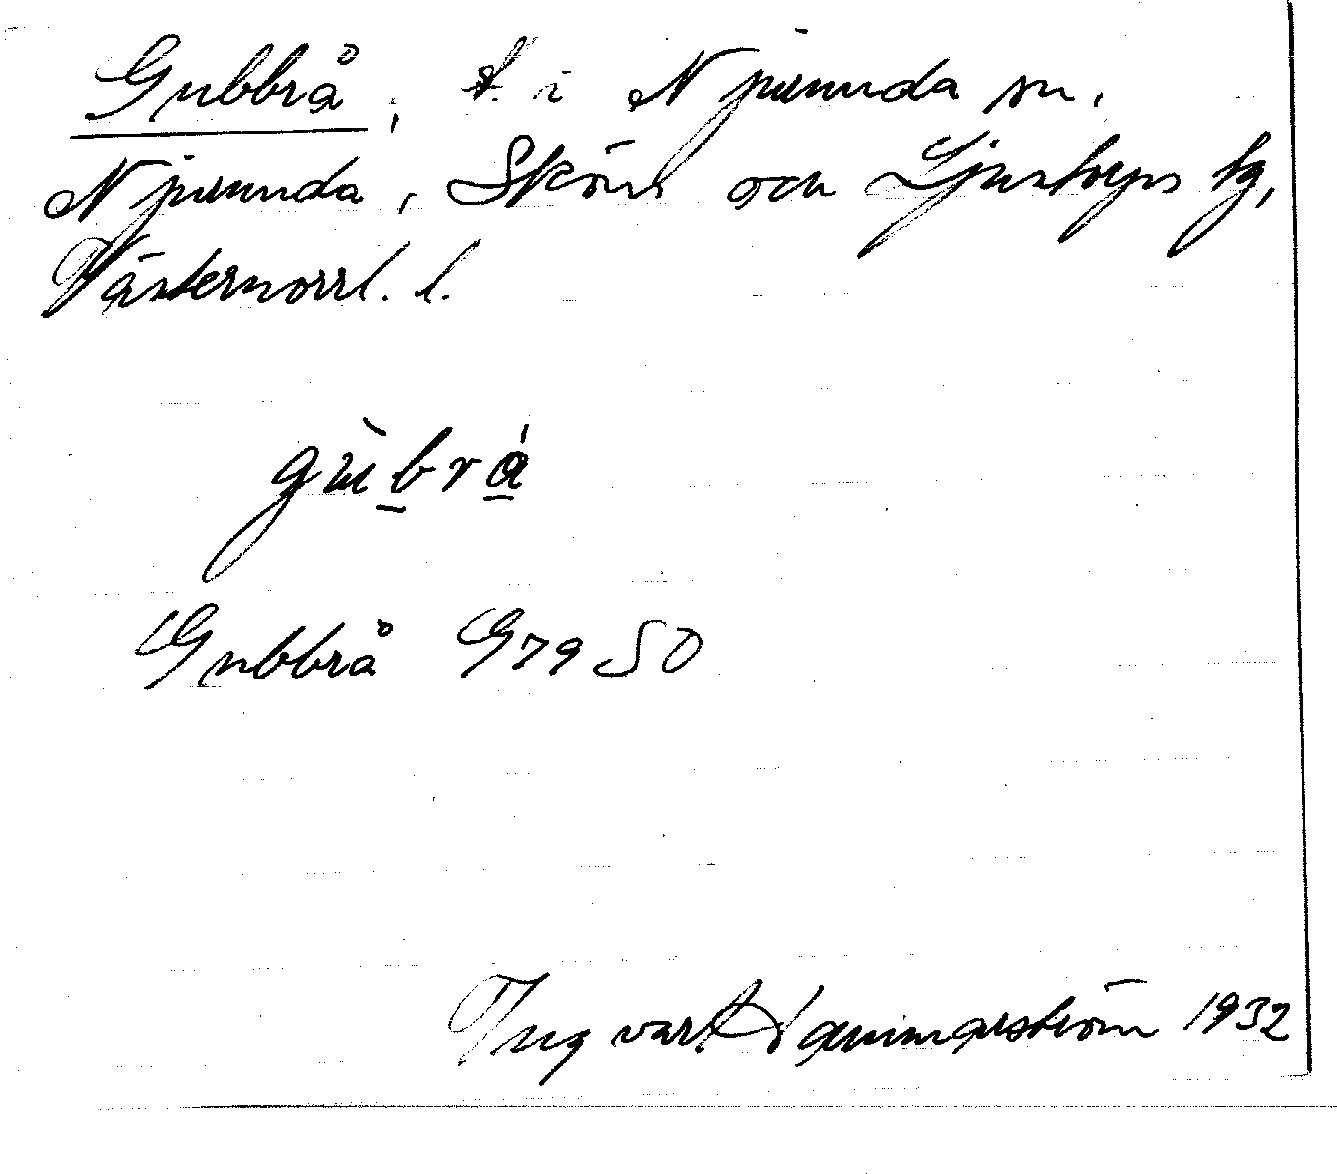 Gubbrå, t. i Njurunda sn.
Njurunda, Sköns och Ljustorps tg,
Västernorrl. l.
gùbrá
Gubbrå G79 SO
Ingvar Hammarström 1932